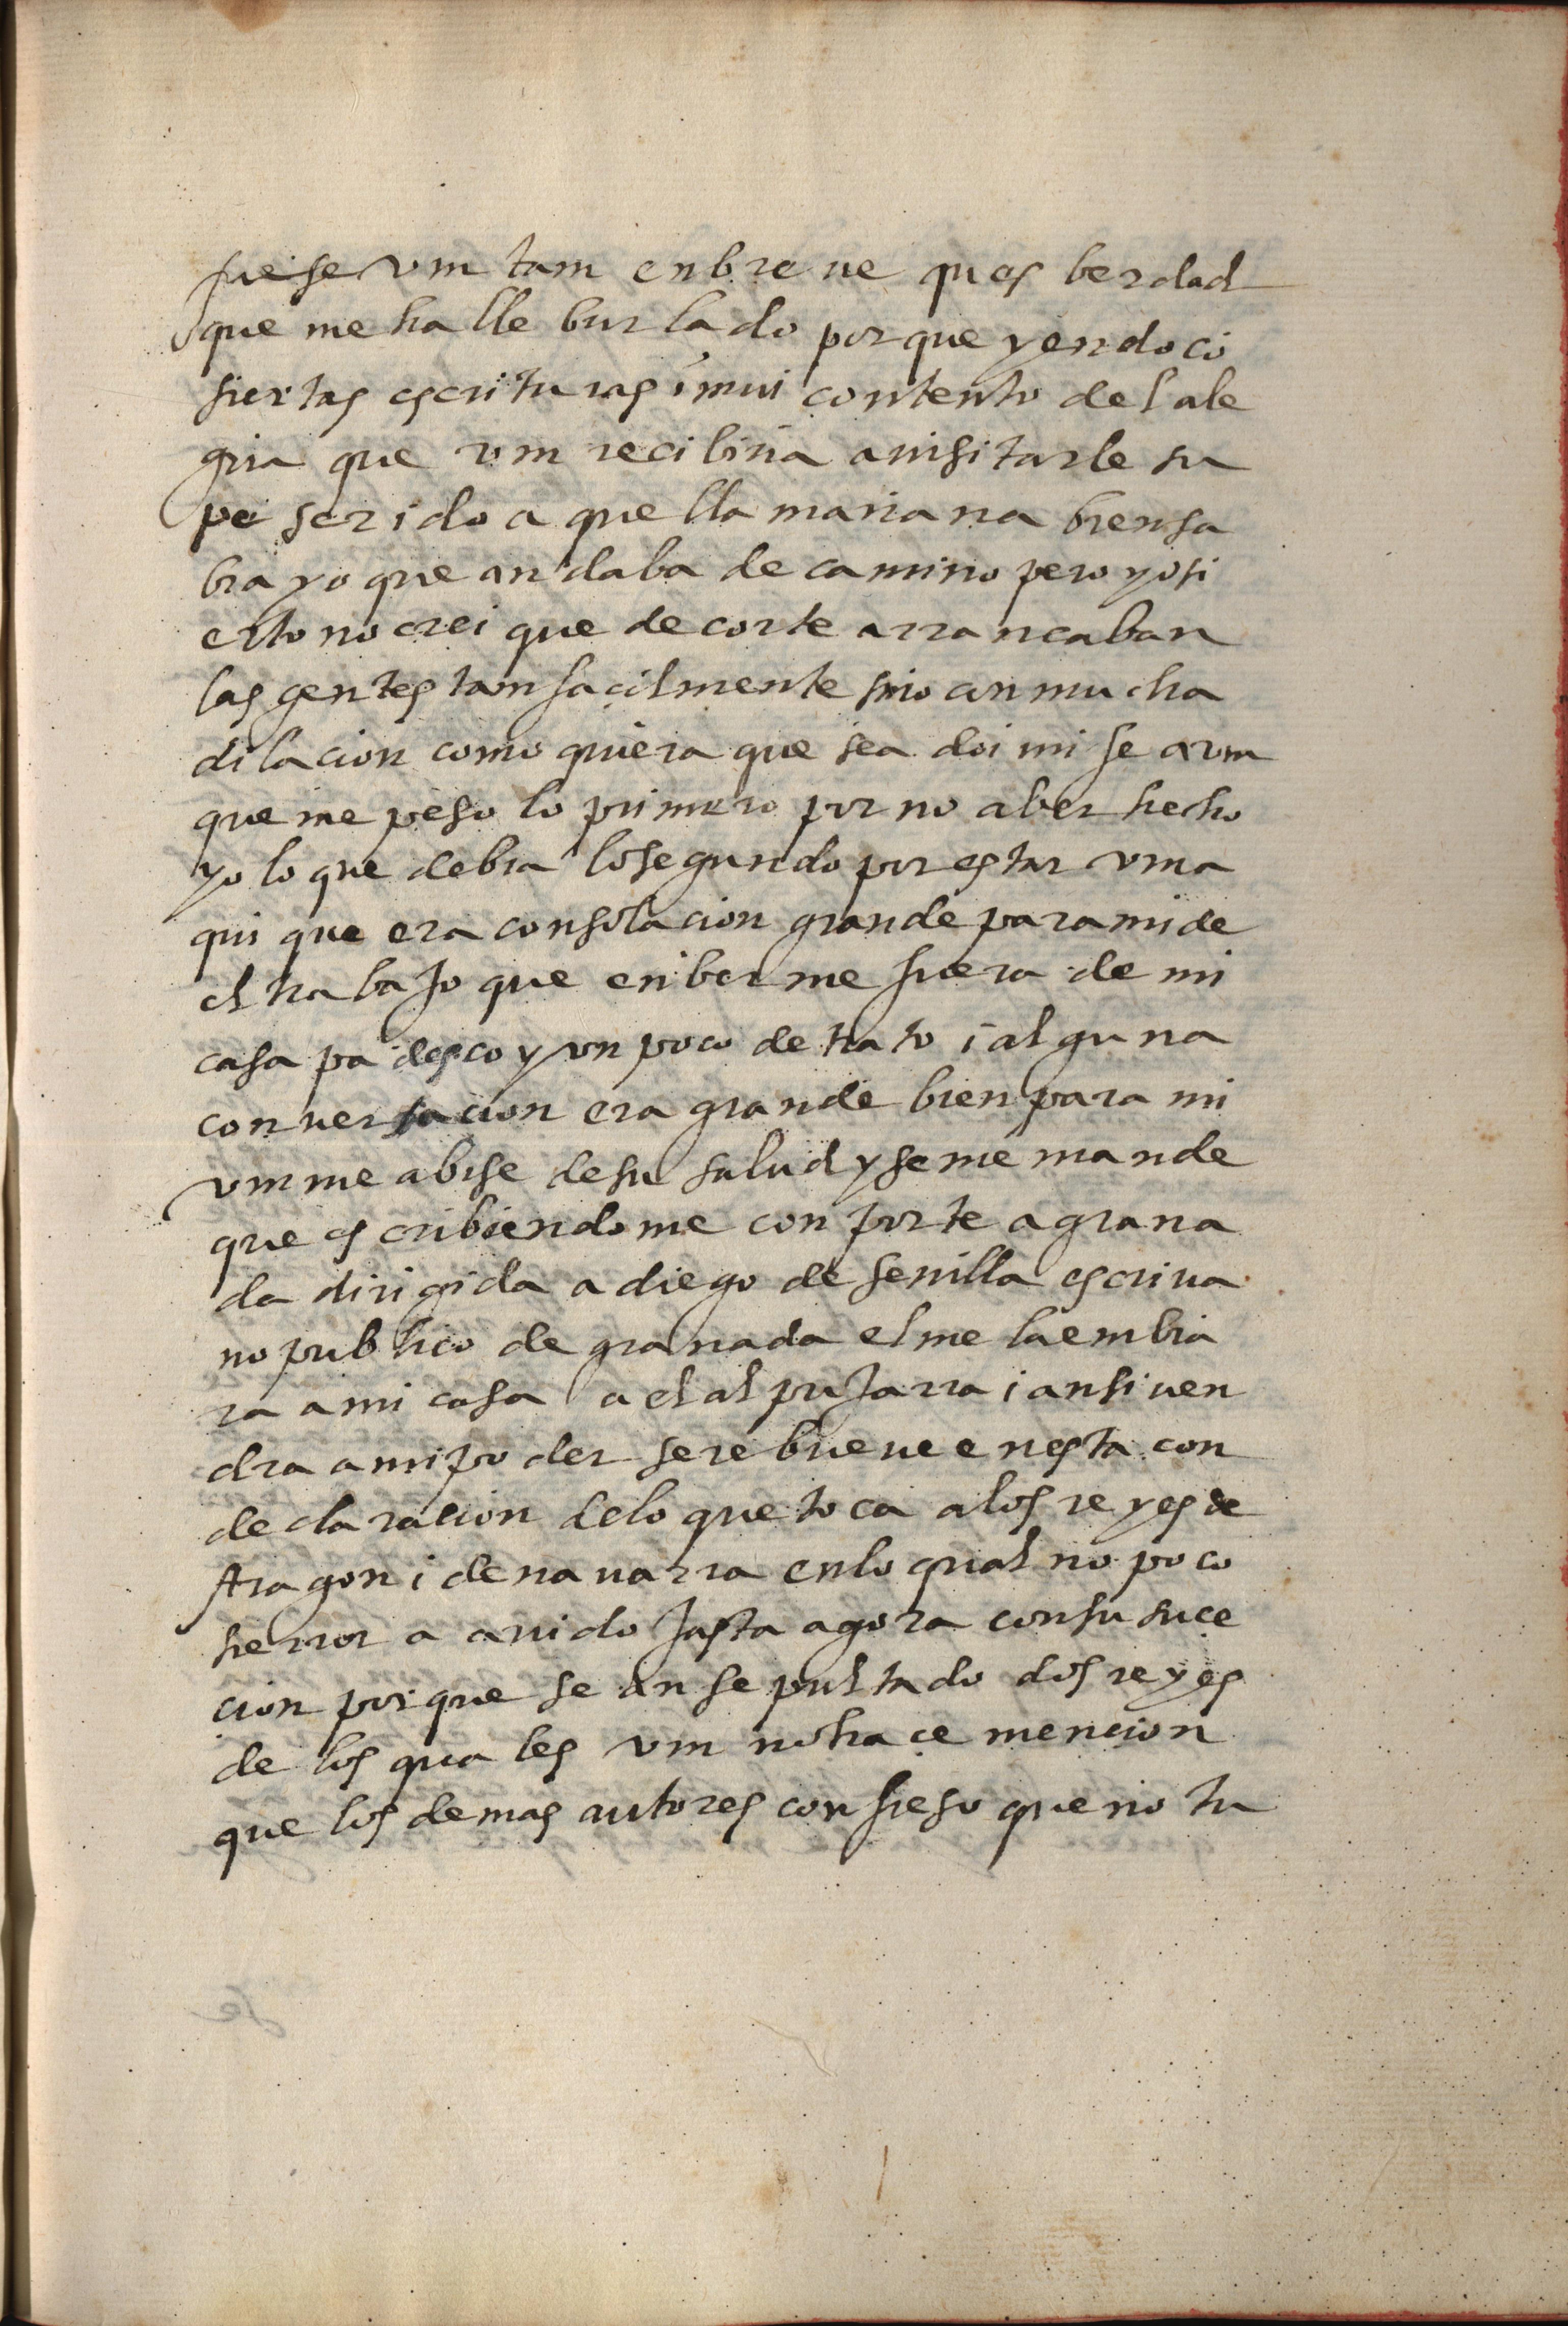 fuese vm tam enbreue ques berdad
que me halle burlado porque yendo cō
siertas escrituras i mui contento del ale
gria que vm recibiria a uisitarle su
pe ser ido aquella mañana bien sa
bia yo que andaba de camino pero yo si
erto no crei que de corte arrancaban
las gentes tan façilmente sino con mucha
dilacion como quiera que sea doi mi fe a vm
que me peso lo primero por no aber hecho
yo lo que debia lo segundo por estar vm a
qui que era consolacion grande para mi de
el trabajo que en berme fuera de mi
casa padesco y vn poco de trato i alguna
conuersacion era grande bien para mi
vm me abise de su salud y se me mande
que escribiendome con porte a grana
da dirigida a diego de seuilla escriua
no publico de granada el me la embia
ra a mi casa a el alpujarra i ansi uen
dra a mi poder sere breue en esta con
declaracion de lo que toca a los reyes de
Aragon i de nauarra en lo qual no poco
hierror a auido jasta agora con su suce
cion porque se an sepultado dos reyes
de los quales vm no haçe mencion
que los demas autores confieso que no tu